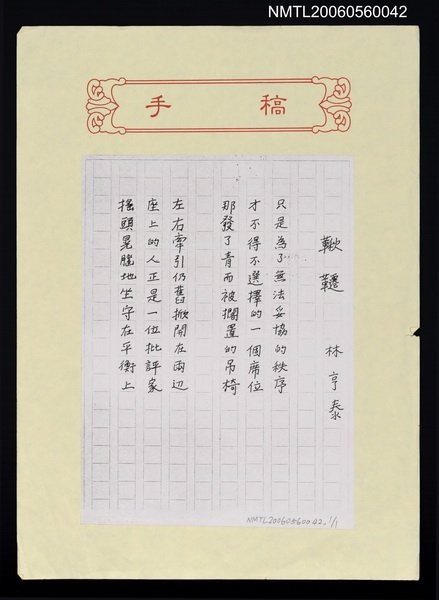 NMTL20060560042
手稿
鞦韆
林亨泰
只是為了無法妥協的秩序
才不得不選擇的一個席位
那發了青而被擱置的吊椅
左右牽引仍舊掀開在兩边
座上的人正是一位批評家
搖頭晃腦地坐守在平衡上
NMTL20060560042, 1/1